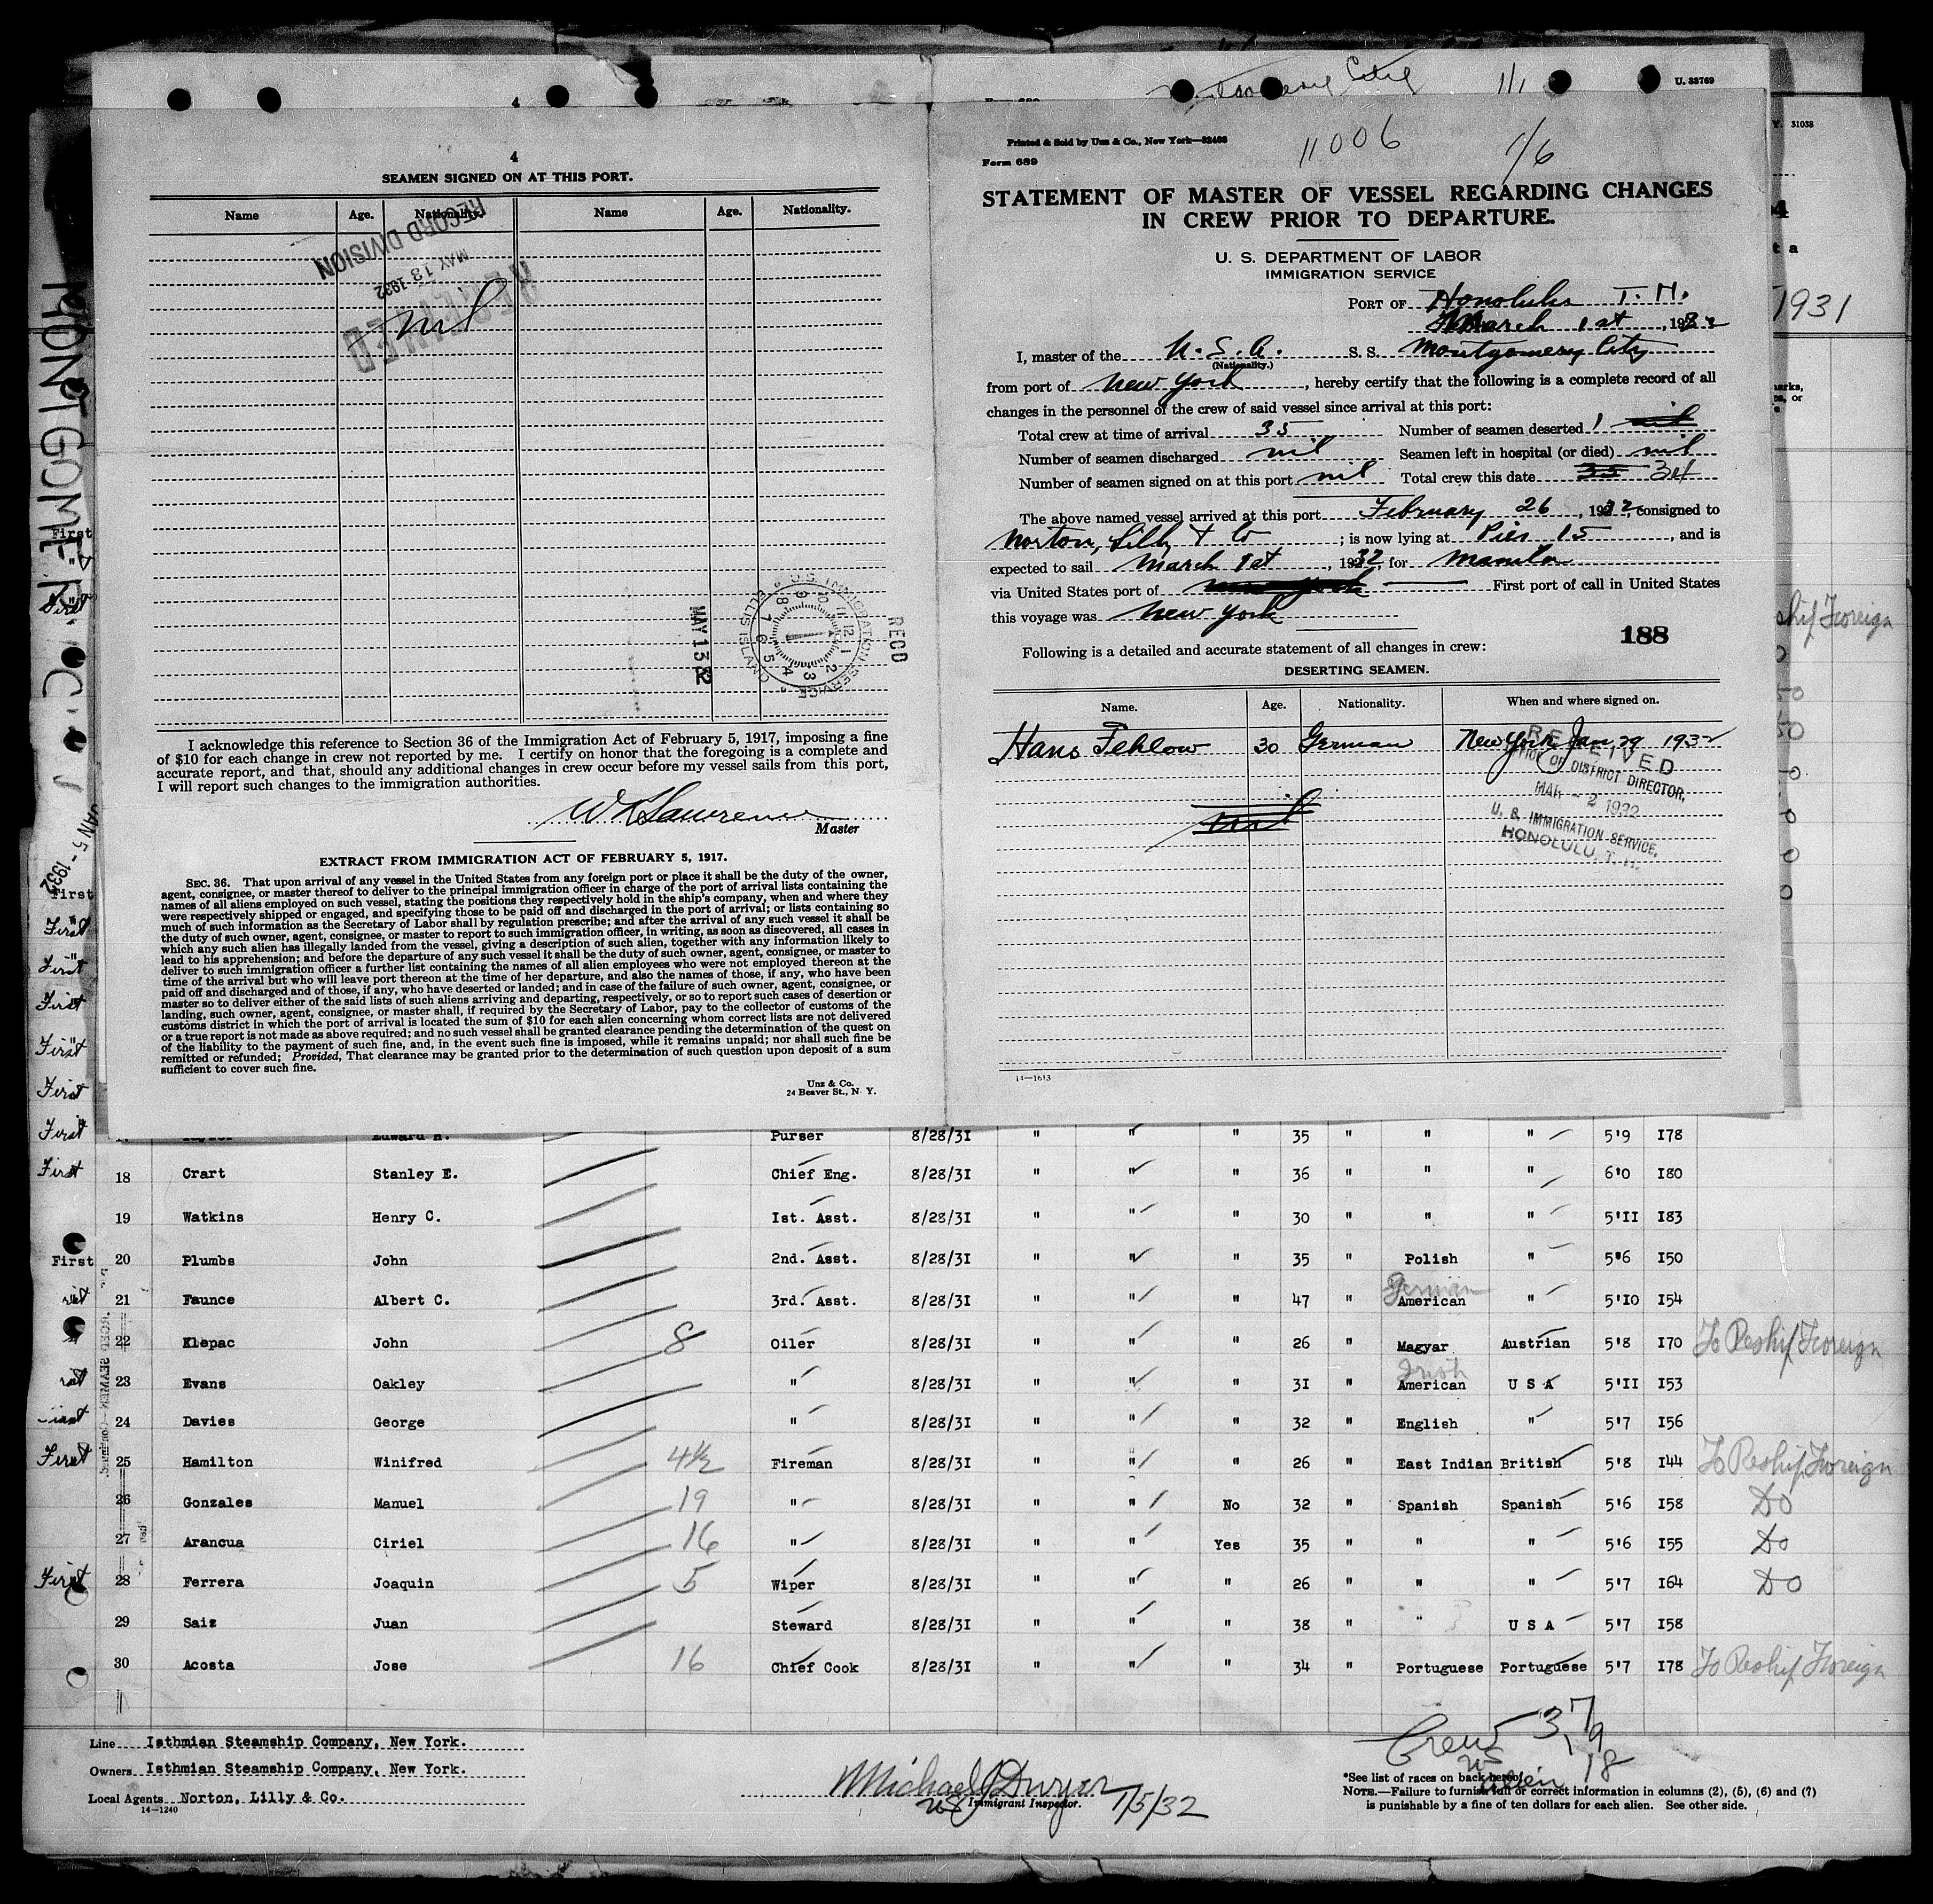 4
SEAMEN SIGNED ON AT THIS PORT.
Name Age. Nationality. Name Age. Nationality.
RECORD DIVISION
MAY 13 1932
RECEIVED
nil
MAY 13
U.S. IMMIGRATION SERVICE
ELLIS ISLAND
RECD
I acknowledge this reference to Section 36 of the Immigration Act of February 5, 1917, imposing a fine
of $10 for each change in crew not reported by me. I certify on honor that the foregoing is a complete and
accurate report, and that, should any additional changes in crew occur before my vessel sails from this port,
I will report such changes to the immigration authorities.
Lawrence
Master
EXTRACT FROM IMMIGRATION ACT OF FEBRUARY 5, 1917.
SEC. 36. That upon arrival of any vessel in the United States from any foreign port or place it shall be the duty of the owner,
agent, consignee, or master thereof to deliver to the principal immigration officer in charge of the port of arrival lists containing the
names of all aliens employed on such vessel, stating the positions they respectively hold in the ship's company, when and where they
were respectively shipped or engaged, and specifying those to be paid off and discharged in the port of arrival; or lists containing so
much of such information as the Secretary of Labor shall by regulation prescribe; and after the arrival of any such vessel it shall be
the duty of such owner, agent, consignee, or master to report to such immigration officer, in writing, as soon as discovered, all cases in
which any such alien has illegally landed from the vessel, giving a description of such alien, together with any information likely to
lead to his apprehension; and before the departure of any such vessel it shall be the duty of such owner, agent, consignee, or master to
deliver to such immigration officer a further list containing the names of all alien employees who were not employed thereon at the
time of the arrival but who will leave port thereon at the time of her departure, and also the names of those, if any, who have been
paid off and discharged and of those, if any, who have deserted or landed; and in case of the failure of such owner, agent, consignee, or
master so to deliver either of the said lists of such aliens arriving and departing, respectively, or so to report such cases of desertion or
landing, such owner, agent, consignee, or master shall, if required by the Secretary of Labor, pay to the collector of customs of the
customs district in which the port of arrival is located the sum of $10 for each alien concerning whom correct lists are not delivered
or a true report is not made as above required; and no such vessel shall be granted clearance pending the determination of the quest on
of the liability to the payment of such fine, and, in the event such fine is imposed, while it remains unpaid; nor shall such fine be
remitted or refunded; Provided, That clearance may be granted prior to the determination of such question upon deposit of a sum
sufficient to cover such fine.
Unz & Co.
24 Beaver St., N. Y.
U. 33769
Printed & Sold by Unz & Co., New York—32408
Form 689
11006 1/6
STATEMENT OF MASTER OF VESSEL REGARDING CHANGES
IN CREW PRIOR TO DEPARTURE.
U. S. DEPARTMENT OF LABOR
IMMIGRATION SERVICE
PORT OF Honolulu T. H.
March 1st, 1932
I, master of the U. S. A. S. S. Montgomery City
(Nationality.)
from port of New York, hereby certify that the following is a complete record of all
changes in the personnel of the crew of said vessel since arrival at this port:
Total crew at time of arrival 35 Number of seamen deserted 1 nil
Number of seamen discharged nil Seamen left in hospital (or died) nil
Number of seamen signed on at this port nil Total crew this date 35 34
The above named vessel arrived at this port February 26, 1932, consigned to
Norton, Lilly & Co; is now lying at Pier 15, and is
expected to sail March 1st, 1932, for Manila
via United States port of New York First port of call in United States
this voyage was New York
188
Following is a detailed and accurate statement of all changes in crew:
DESERTING SEAMEN.
Name. Age. Nationality. When and where signed on.
Hans Fehlow 30 German New York Jan 29 1932
nil
RECEIVED
OFFICE OF DISTRICT DIRECTOR,
MAR - 2 1932
U. S. IMMIGRATION SERVICE,
HONOLULU, T. H.
14—1613
31038
1931
Edward H. Purser 8/28/31 " " " 35 " " " 5'9 178
First 18 Crart Stanley E. Chief Eng. 8/28/31 " " " 36 " " " 6'0 180
19 Watkins Henry C. 1st. Asst. 8/28/31 " " " 30 " " " 5'11 183
First 20 Plumbs John 2nd. Asst. 8/28/31 " " " 35 " Polish " 5'6 150
21 Faunce Albert C. 3rd. Asst. 8/28/31 " " " 47 " German American " 5'10 154
22 Klepac John 8 Oiler 8/28/31 " " " 26 " Magyar Austrian 5'8 170 To Reship Foreign
23 Evans Oakley " 8/28/31 " " " 31 " Irish American U S A 5'11 153
24 Davies George " 8/28/31 " " " 32 " English " 5'7 156
First 25 Hamilton Winifred 4½ Fireman 8/28/31 " " " 26 " East Indian British 5'8 144 To Reship Foreign
26 Gonzales Manuel 19 " 8/28/31 " " No 32 " Spanish Spanish 5'6 158 Do
27 Arancua Ciriel 16 " 8/28/31 " " Yes 35 " " " 5'6 155 Do
First 28 Ferrera Joaquin 5 Wiper 8/28/31 " " " 26 " " " 5'7 164 Do
29 Saiz Juan Steward 8/28/31 " " " 38 " " U S A 5'7 158
30 Acosta Jose 16 Chief Cook 8/28/31 " " " 34 " Portuguese Portuguese 5'7 178 To Reship Foreign
Line Isthmian Steamship Company, New York.
Owners Isthmian Steamship Company, New York.
Local Agents Norton, Lilly & Co.
14-1240
Michael J Dwyer
Immigrant Inspector. 1/5/32
Crew 37
US 19
Alien 18
*See list of races on back hereof.
NOTE.—Failure to furnish full or correct information in columns (2), (5), (6) and (7)
is punishable by a fine of ten dollars for each alien. See other side.